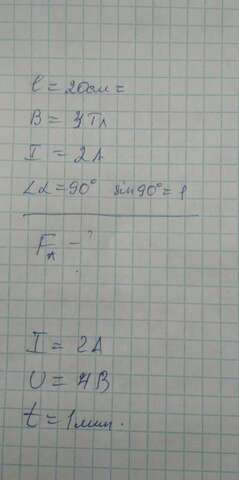 l = 20см =
B = 4Тл
I = 2А
∠α = 90° sin90° = 1
Fл - ?
I = 2А
U = 4В
t = 1мин.